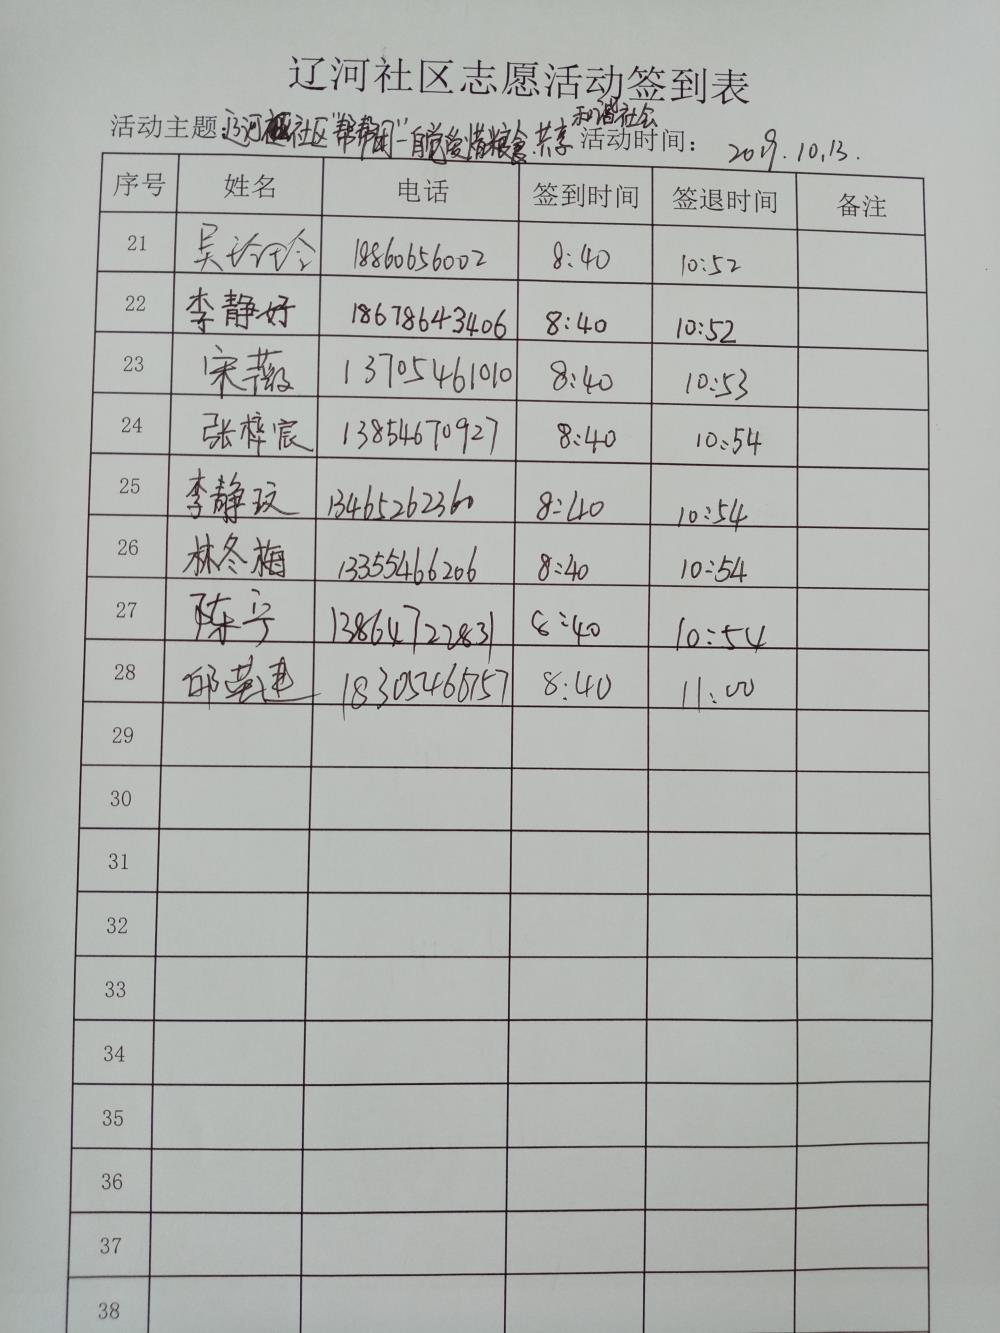 辽河社区志愿活动签到表
和谐社会
活动主题:辽河社区"帮帮团"—自觉爱惜粮食.共享 活动时间: 2019.10.13.
序号 姓名 电话 签到时间 签退时间 备注
21 吴 18860656002 8:40 10:52
22 李静好 18678643406 8:40 10:52
23 宋薇 13705461010 8:40 10:53
24 张梓宸 13854670927 8:40 10:54
25 李静玟 13465262360 8:40 10:54
26 林冬梅 13355466206 8:40 10:54
27 陈宁 13864722831 8:40 10:54
28 邱英建 18305466757 8:40 11:00
29
30
31
32
33
34
35
36
37
38